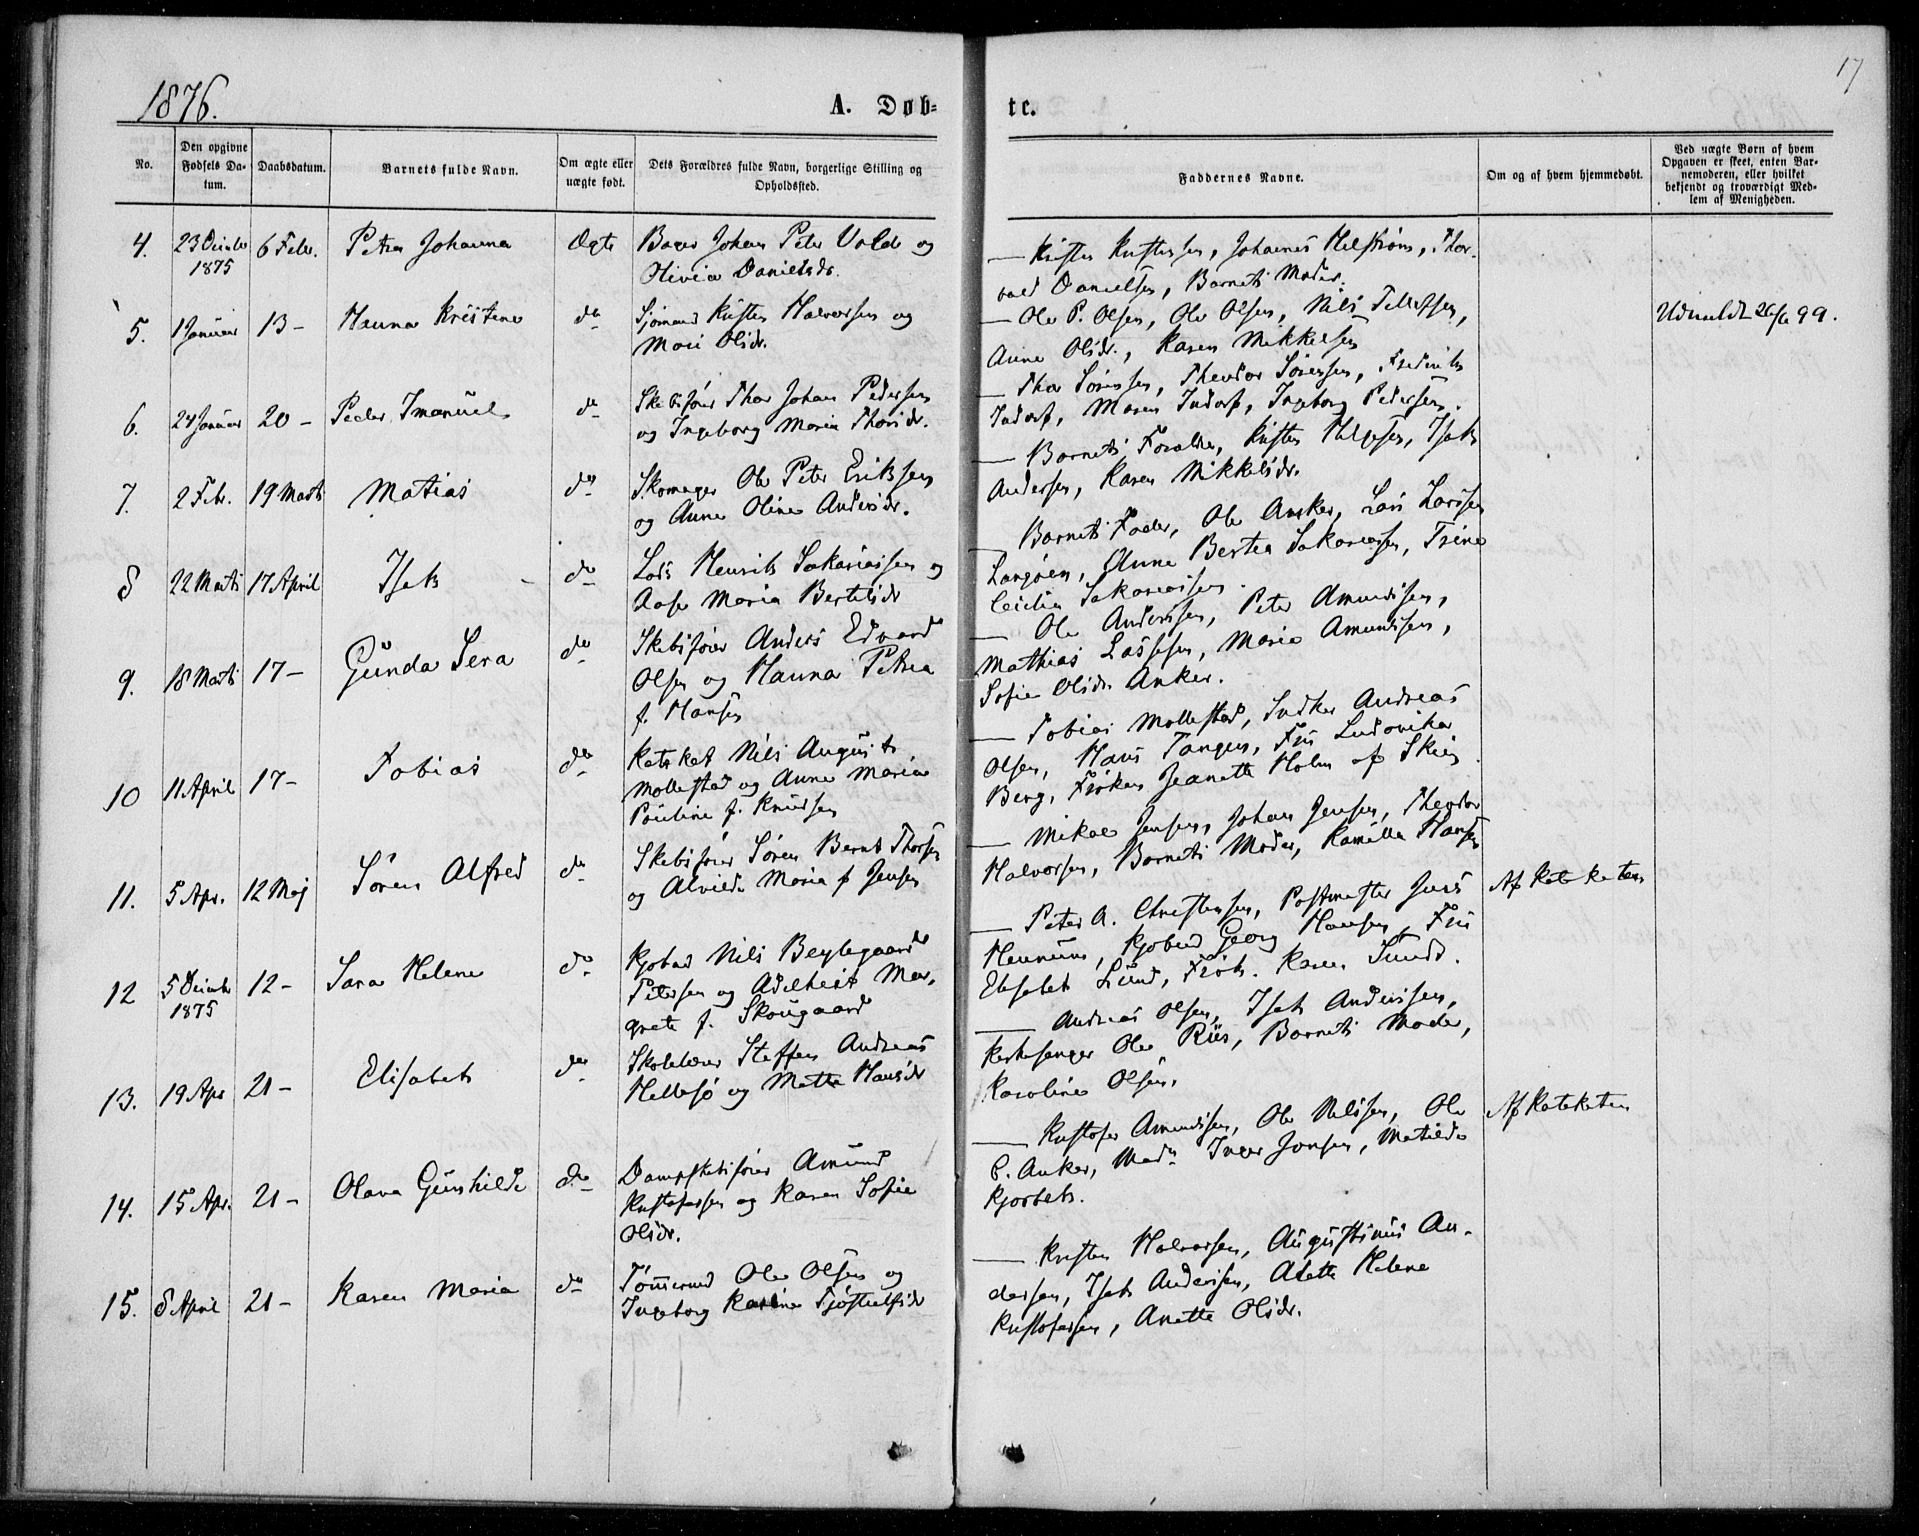 1876.
A. Døb-
te.
17
No.
Den opgivne Fødsels Da-tum.
Daabsdatum.
Barnets fulde Navn.
Om ægte eller uægte født.
Dets Forældres fulde Navn, borgerlige Stilling og Opholdssted.
Faddernes Navne.
Om og af hvem hjemmedøbt.
Ved uægte Børn af hvem Opgaven er skeet, enten Bar-nemoderen, eller hvilket bekjendt og troværdigt Med-lem af Menigheden.
4. 23 Decmbr 6 Febr. Petra Johanna Ægte Bager Johan Peter Volde og
1875 Olivia Danielsdr.
5. 1 Januar 13 - Hanna Kristene do Sjømand Kristen Halvorsen og
Mari Olsdr.
6. 24 Januar 20 - Peder Imanuel do Skibsfører Thor Johan Pedersen
og Ingeborg Maria Thorsdr.
7. 2 Febr. 19 Marts Matias do Skomager Ole Peter Eriksen
og Anne Oline Andersdr.
8 22 Marts 17 April Isak do Lods Henrik Sakariassen og
Aase Maria Bertelsdr
9. 18 Marts 17 - Gunda Sera do Skibsfører Anders Edvard
Olsen og Hanna Petrea
f. Hansen
10 11 April 17 - Tobias do Kateket Nils August
Mollestad og Anne Marie
Pauline f. Knudsen
11. 5 Apr. 12 Maj Søren Alfred do Skibsfører Søren Bernt Thorsen
og Alvilde Maria f Jensen
12 5 Decmbr 12 - Sara Helene do Kjøbmd Nils Beylegaard
1875 Petersen og Adelheit Mar-
grete f. Skougaard
13. 19 Apr 21 - Elisabet do Skolelærer Steffen Andreas
Hellesø og Mette Hansdr
14. 15 Apr. 21 - Olava Gunhilde do Dampskibsfører Amund
Kristofersen og Karen Sofie
Olsdr.
15. 8 April 21 - Karen Maria do Tømmermd Ole Olsen og
Ingeborg Karine Tjøstulfsdr
— Kristen Kristensen, Johannes Helstrøm, Thor-
vald Danielsen, Barnets Moder.
— Ole P. Olsen, Ole Olsen, Nils Tellefsen,
Anne Olsdr., Karen Mikkelsen
Udmeldt 26/6 99.
— Thor Sørensen, Theodor Sørensen, Fredrik
Indorf, Maren Indorf, Ingeborg Pedersen.
— Barnets Forældre, Kristen Helgesen, Isak
Andersen, Karen Mikkelsdr.
— Barnets Fader, Ole Anker, Lars Larssen
Langøen, Anne Bertea Sakariassen, Trine
Cecilia Sakariassen.
— Ole Anderssen, Peter Amundsen,
Mathias Lassesen, Marie Amundsen,
Sofie Olsdr. Anker.
— Tobias Mollestad, Andreas
Olsen, Hans Tangen, Fru Ludovika
Berg, Frøken Jeanette Holm af Skien.
— Mikael Jensen, Johan Jensen, Theodor
Halvorsen, Barnets Moder, Kamilla Hansen
— Peter A. Christensen, Postmester Juss
Af Kateketen
Hennum, Kjøbmd Georg Hansen, Fru
Elisabet Lund, Frøk. Karen Lund.
— Andreas Olsen, Isak Anderssen,
Kirkesanger Ole Riis, Barnets Moder,
Karoline Olsen.
— Kristofer Amundsen, Ole Nilsen, Ole
Af Kateketen
C. Anker, Madm Inger Jonsen, Matilde
— Kristen Halvorsen, Augustinus An-
dersen, Isak Anderssen, Alette Helene
Kristofersen, Anette Olsdr.